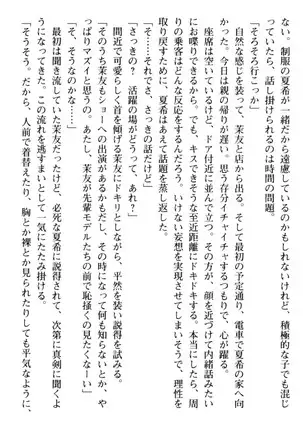 ない。制服の夏希が一緒だから遠慮しているのだけれど、積極的な子でも混じ
っていたら、話し掛けられるのは時間の問題。
「そろそろ行こっか」
自然な感じを装って、茉友と店から出る。そして最初の予定通り、電車で夏希の家へ向
かう。今日は親の帰りが遅い。思う存分イチャイチャするつもりで、心が躍る。
座席は空いているけど、ドア付近に並んで立つ。その方が、顔を近づけて内緒話みたい
にお喋りできるから。でも、キスできそうな至近距離にドキドキする。本当にしたら、周
りの乗客はどんな反応をするんだろう。いけない妄想を実現してしまいそうで、理性を
取り戻すために、夏希はあえて話題を蒸し返した。
「そ……それでさ、さっきの話だけど」
「さっきの？　活躍の場がどうって、あれ？」
間近で可愛らしく首を傾げる茉友にドキリとしながら、平然を装い説得を試みる。
「そのうち茉友もショーとかに出演があるかもだし、その時になって何も知らないとか、や
っぱマズイと思うの。あたし、茉友が先輩モデルたちの前で恥掻くの見たくなーい」
「そ、そうなのかな……」
最初は聞き流していた茉友だったけど、必死な夏希に説得されて、次第に真剣に聞くよ
うになってきた。この流れを逃すまいとして一気にたたみ掛ける。
「そうそう。だから、人前で着替えたり、胸とか裸とか見られたりしても平気なように、